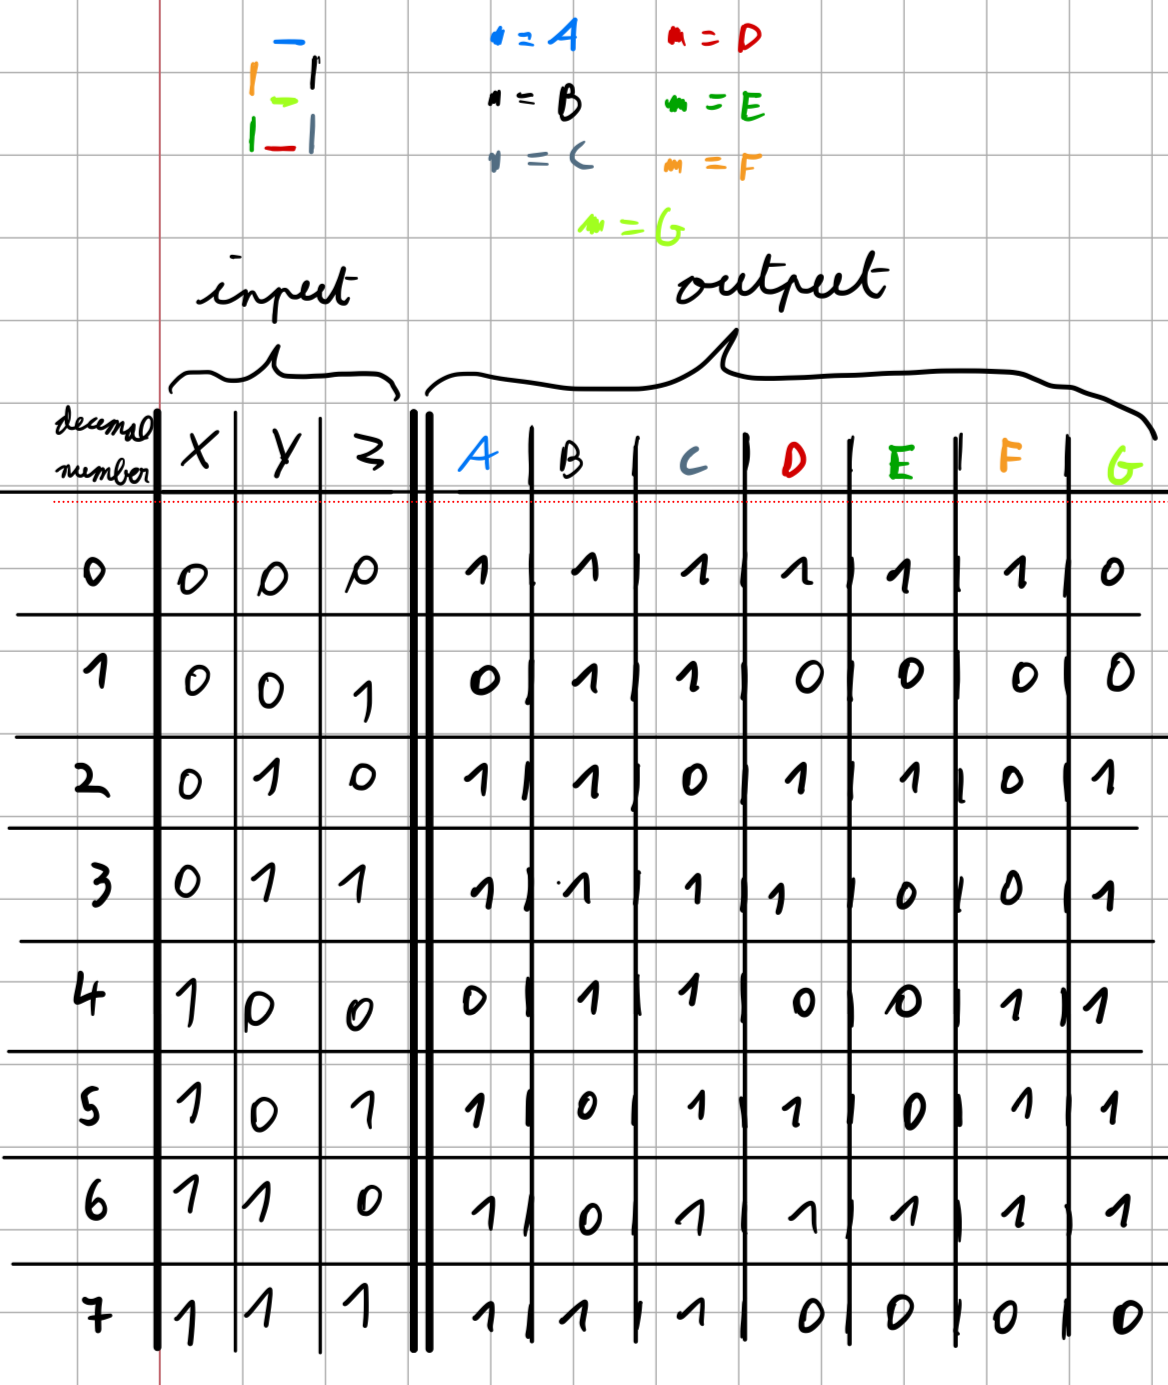 = A = D
= B = E
= C = F
= G
input output
decimal
number X Y Z A B C D E F G
0 0 0 0 1 1 1 1 1 1 0
1 0 0 1 0 1 1 0 0 0 0
2 0 1 0 1 1 0 1 1 0 1
3 0 1 1 1 1 1 1 0 0 1
4 1 0 0 0 1 1 0 0 1 1
5 1 0 1 1 0 1 1 0 1 1
6 1 1 0 1 0 1 1 1 1 1
7 1 1 1 1 1 1 0 0 0 0